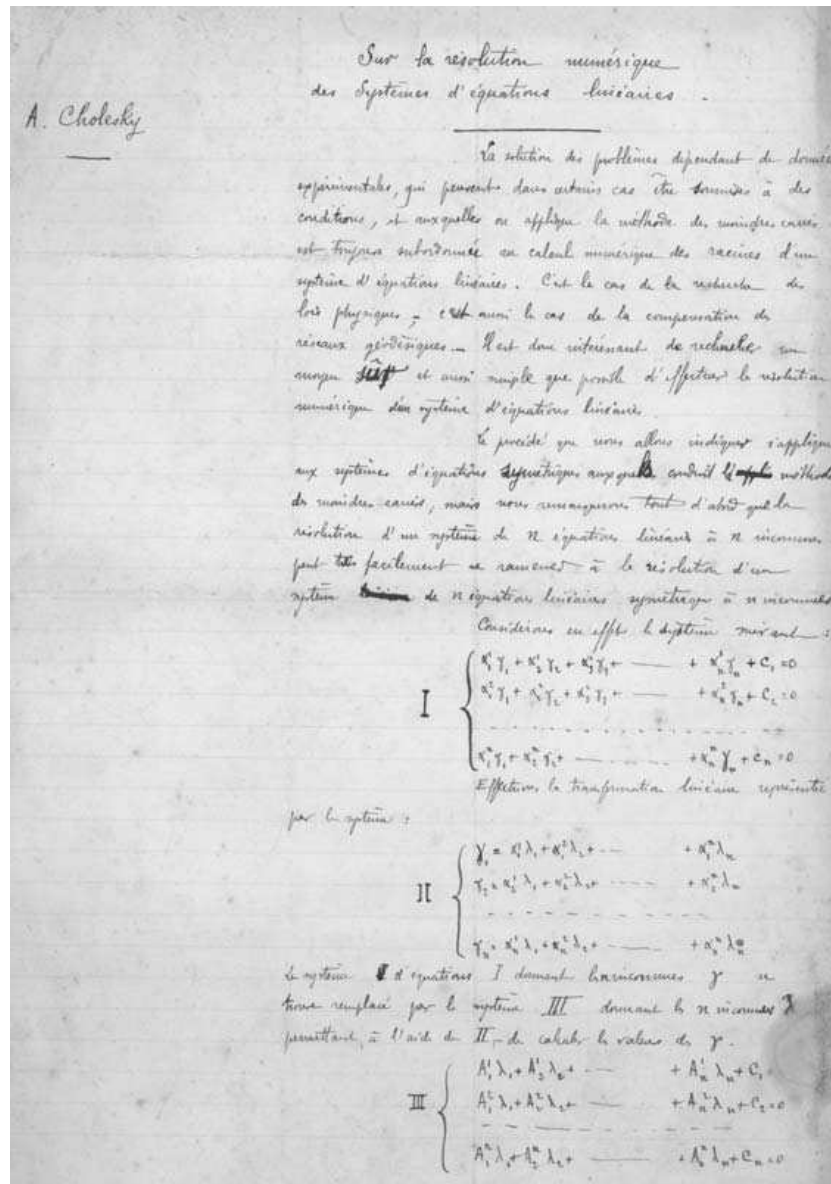 Sur la résolution numérique
des Systèmes d'équations linéaires.
A. Cholesky
La solution des problèmes dépendant de donnée
expérimentales, qui peuvent dans certains cas être soumises à des
conditions, et auxquelles on applique la méthode des moindres carrés
est toujours subordonnée au calcul numérique des racines d'un
système d'équations linéaires. C'est le cas de la recherche des
lois physiques - c'est aussi le cas de la compensation des
réseaux géodésiques - Il est donc intéressant de rechercher un
moyen sûr et aussi simple que possible d'effectuer la résolution
numérique d'un système d'équations linéaires.
Le procédé que nous allons indiquer s'applique
aux systèmes d'équations symétriques auxquels conduit la méthode
des moindres carrés, mais nous remarquerons tout d'abord que la
résolution d'un système de n équations linéaires à n inconnues
peut très facilement se ramener à la résolution d'un
système de n équations linéaires symétriques à n inconnues
Considérons en effet le système suivant :
I
α¹₁γ₁ + α¹₂γ₂ + α¹₃γ₃ + ------ + α¹ₙγₙ + C₁ = 0
α²₁γ₁ + α²₂γ₂ + α²₃γ₃ + ------ + α²ₙγₙ + C₂ = 0
αⁿ₁γ₁ + αⁿ₂γ₂ + ------ + αⁿₙγₙ + Cₙ = 0
Effectuons la transformation linéaire représentée
par le système :
II
γ₁ = α¹₁λ₁ + α²₁λ₂ + ---- + αⁿ₁λₙ
γ₂ = α¹₂λ₁ + α²₂λ₂ + ---- + αⁿ₂λₙ
γₙ = α¹ₙλ₁ + α²ₙλ₂ + ---- + αⁿₙλₙ
Le système d'équations I donnant les inconnues γ se
trouve remplacé par le système III donnant les n inconnues λ
permettant, à l'aide de II, de calculer les valeurs des γ.
III
A¹₁λ₁ + A¹₂λ₂ + ---- + A¹ₙλₙ + C₁ =
A²₁λ₁ + A²₂λ₂ + ---- + A²ₙλₙ + C₂ = 0
Aⁿ₁λ₁ + Aⁿ₂λ₂ + ---- + Aⁿₙλₙ + Cₙ = 0